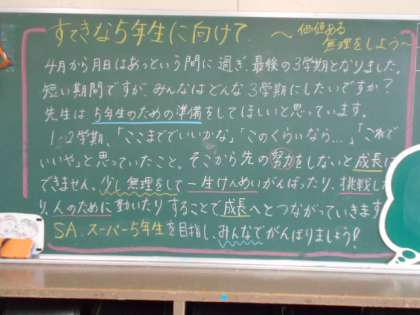 すてきな5年生に向けて
～価値ある
無理をしよう～
4月から月日はあっという間に過ぎ、最後の3学期となりました。
短い期間ですが、みんなはどんな3学期にしたいですか？
先生は5年生のための準備をしてほしいと思っています。
1・2学期、「ここまででいいかな」「このくらいなら…」「これで
いいや」と思っていたこと。そこから先の努力をしないと成長は
できません。少し無理をして一生けんめいがんばったり、挑戦した
り、人のために動いたりすることで成長へとつながっていきます。
SA、スーパー5年生を目指し、みんなでがんばりましょう！